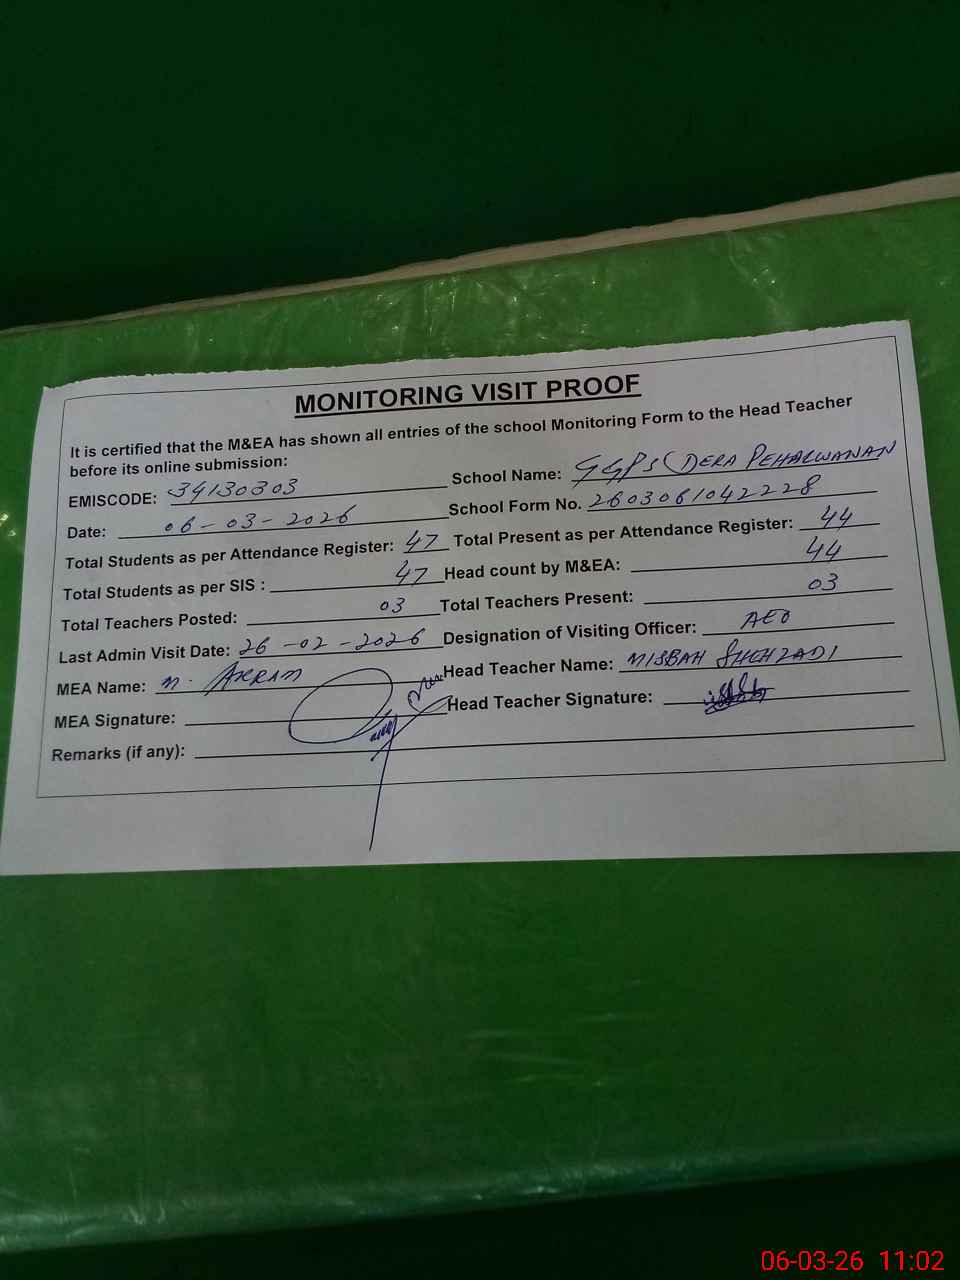 MONITORING VISIT PROOF
It is certified that the M&EA has shown all entries of the school Monitoring Form to the Head Teacher
before its online submission:
EMISCODE: 34130303 School Name: GGPS (DERA PEHALWANAN
Date: 06-03-2026 School Form No. 2603061042228
Total Students as per Attendance Register: 47 Total Present as per Attendance Register: 44
Total Students as per SIS : 47 Head count by M&EA: 44
Total Teachers Posted: 03 Total Teachers Present: 03
Last Admin Visit Date: 26-02-2026 Designation of Visiting Officer: AEO
MEA Name: M. AKRAM Head Teacher Name: MISBAH SHEHZADI
MEA Signature: Head Teacher Signature:
Remarks (if any):
06-03-26 11:02